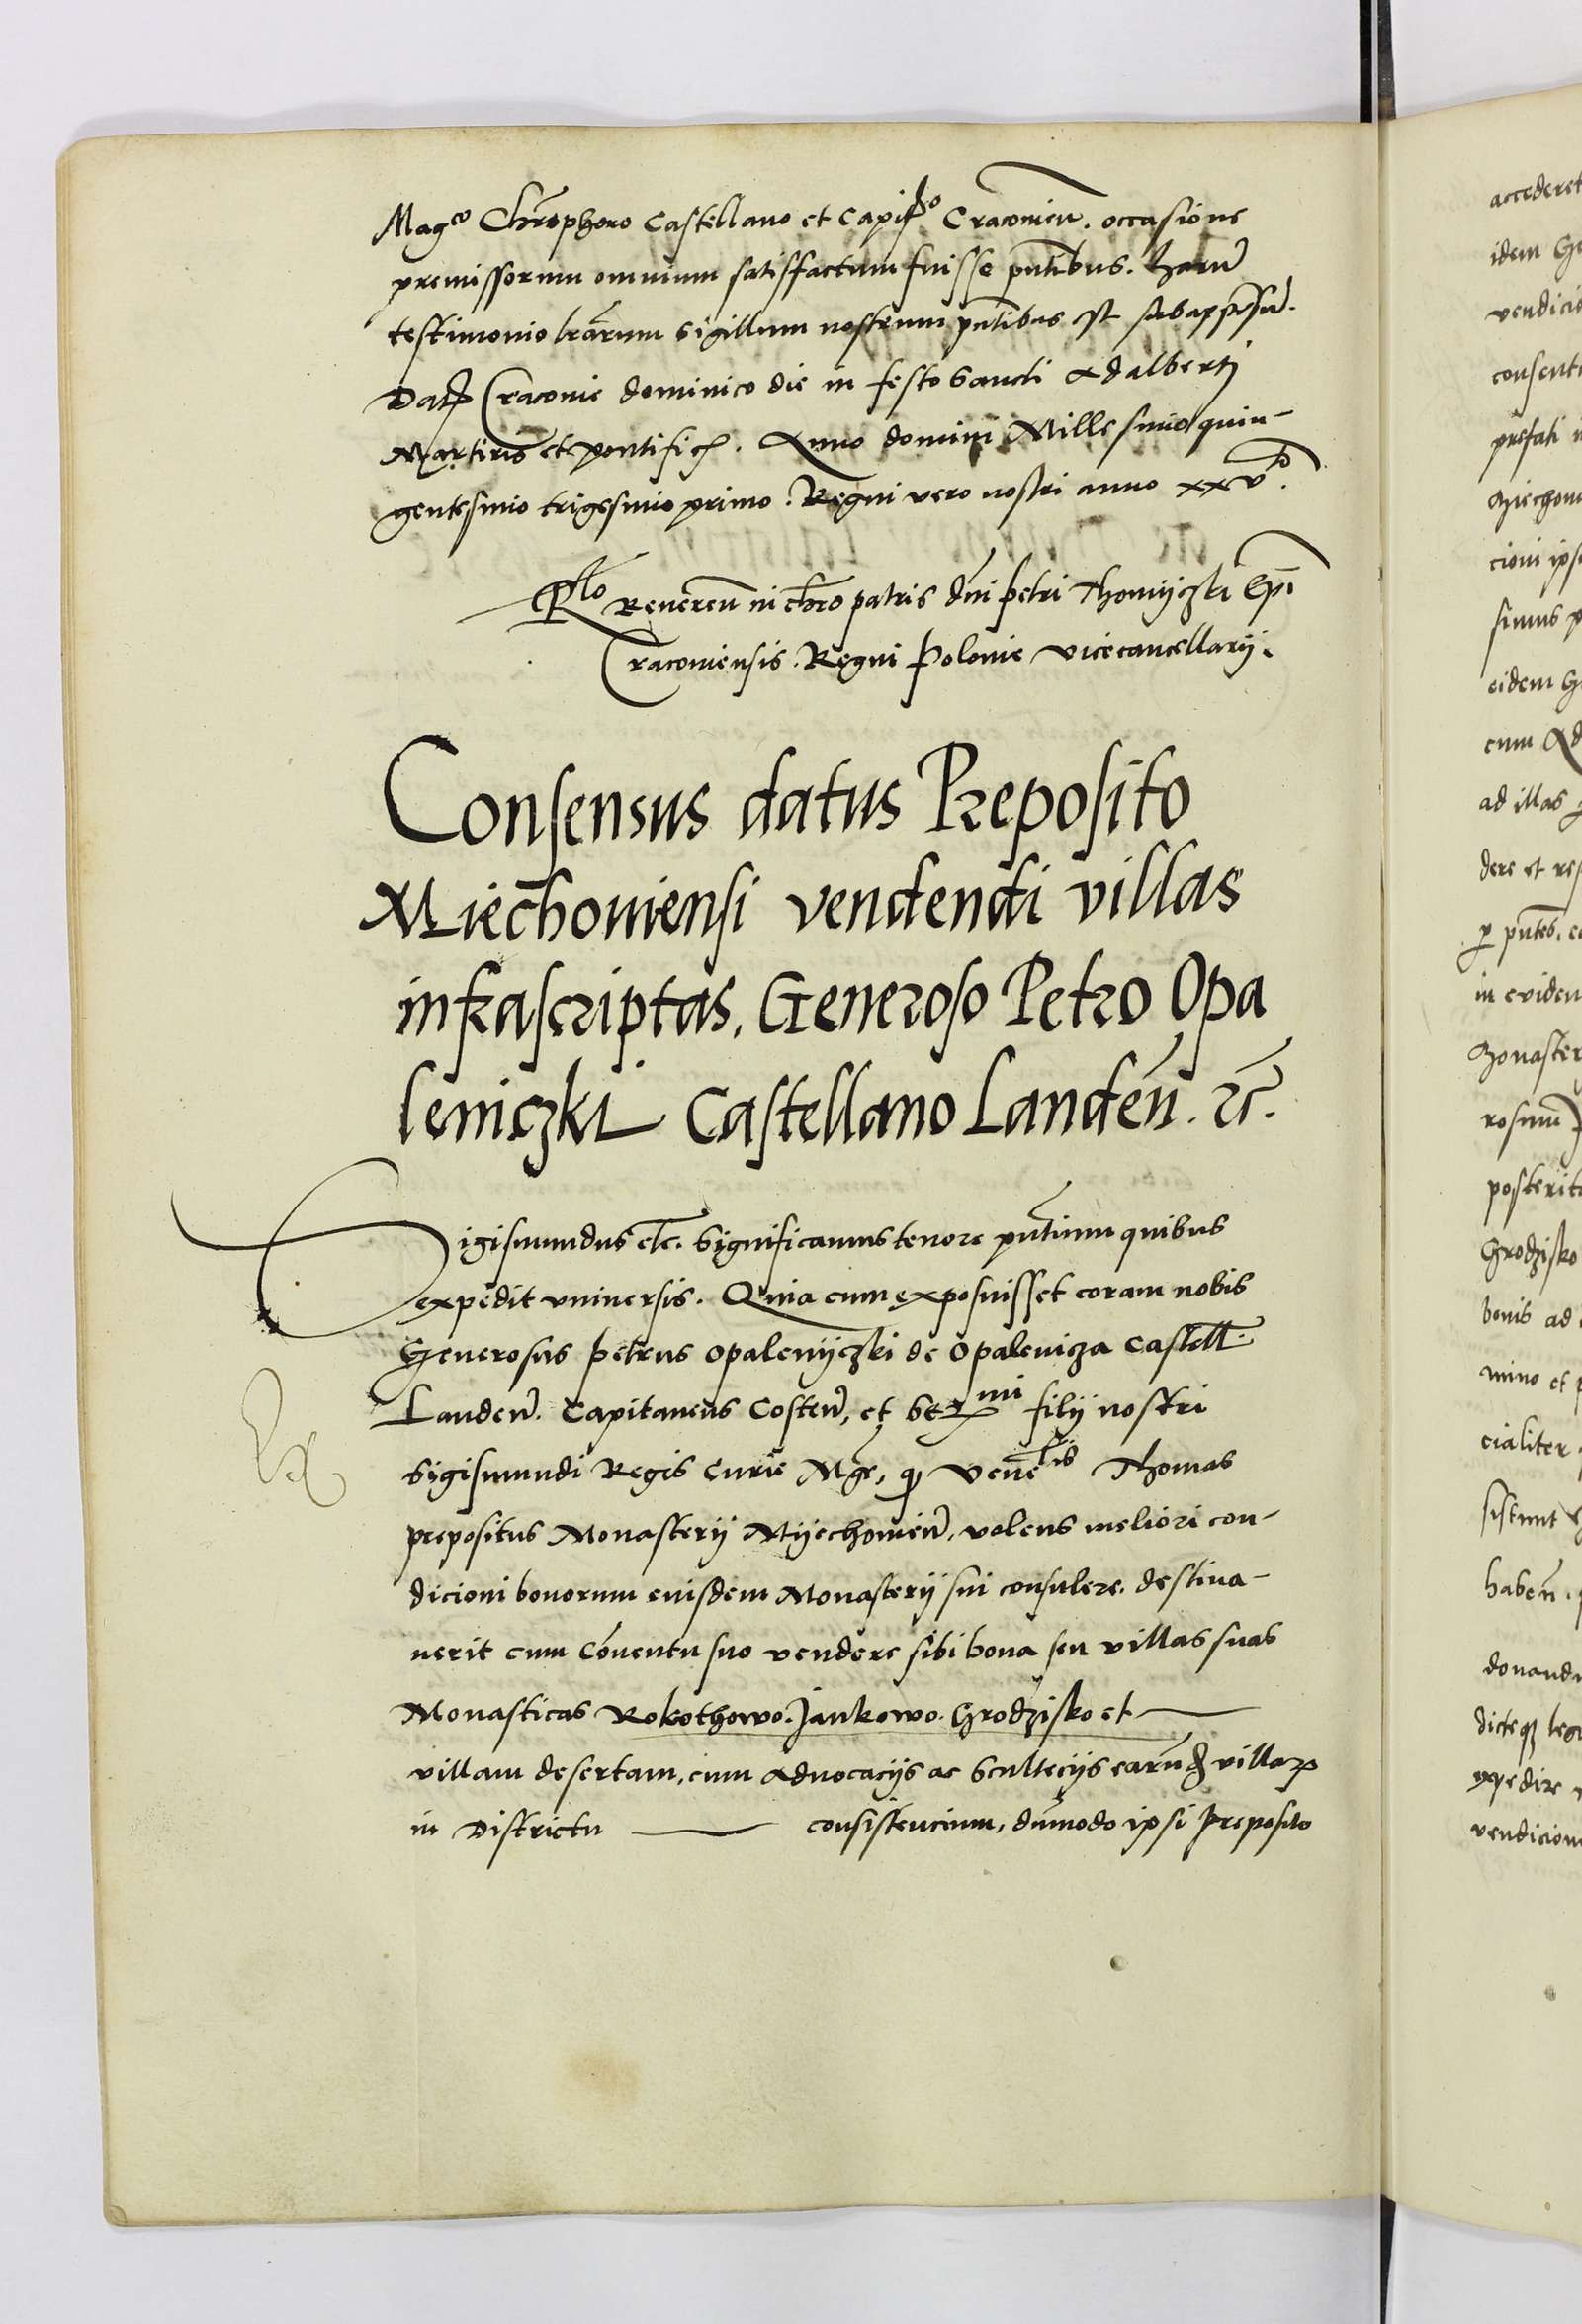 Magco Chrophoro Castellano et Capitō Cracovień. occasione
premissorum omnium satisfactum fuisse pñtibus. Harū
testimonio lrārum Sigillum nostrum pñtibus est subappēsū.
Dat Cracovie dominico die in festo Sancti Adalberti
Martiris et pontificis. Anno domini Millesimo quin-
gentesimo trigesimo primo. Regni vero nostri anno xxvto.
Rlo Reveren in chro patris dñi Petri Thomyczki Epi
Cracoviensis. Regni Polonie vicecancellarij.
Consensus datus Preposito
Miechoviensi vendendi villas
infrascriptas, Generoso Petro Opa
leniczki Castellano Landeñ. etc.
Sigismundus etc. Significamus tenore pñtium quibus
expedit universis. Quia cum exposuisset coram nobis
Generosus Petrus Opalenyczki de Opalenicza Castell.
Landeñ. Capitaneus Costeñ, et Sermi filij nostri
Sigismundi Regis Curie Mgr, q Venelis Thomas
prepositus Monasterij Myechovieñ, volens meliori con-
dicioni bonorum eiusdem Monasterij sui consulere, destina-
verit cum Cōventu suo vendere sibi bona seu villas suas
Monasticas Rokothowo. Jankowo. Grodzisko et
villam desertam, cum advocacijs ac Scultecijs earūd villar
in Districtu consistencium, dūmodo ipsi Preposito
accederet
idem Ge
vendicio
consenti
prefati
Miechovi
cioni ips
simus p
eidem G
cum Ad
ad illas
dere et res
p pñtes. c
in eviden
Monaster
rosum
posterit
Grodzisko
bonis ad
mino et p
cialiter
sistunt
habeñ.
donandu
dicteq
expedire
vendicion